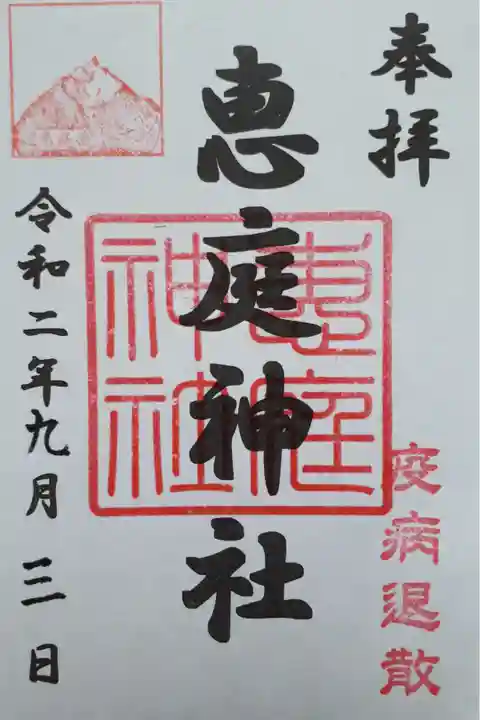 奉拝
疫病退散
恵庭神社
恵庭
神社
令和二年九月三日